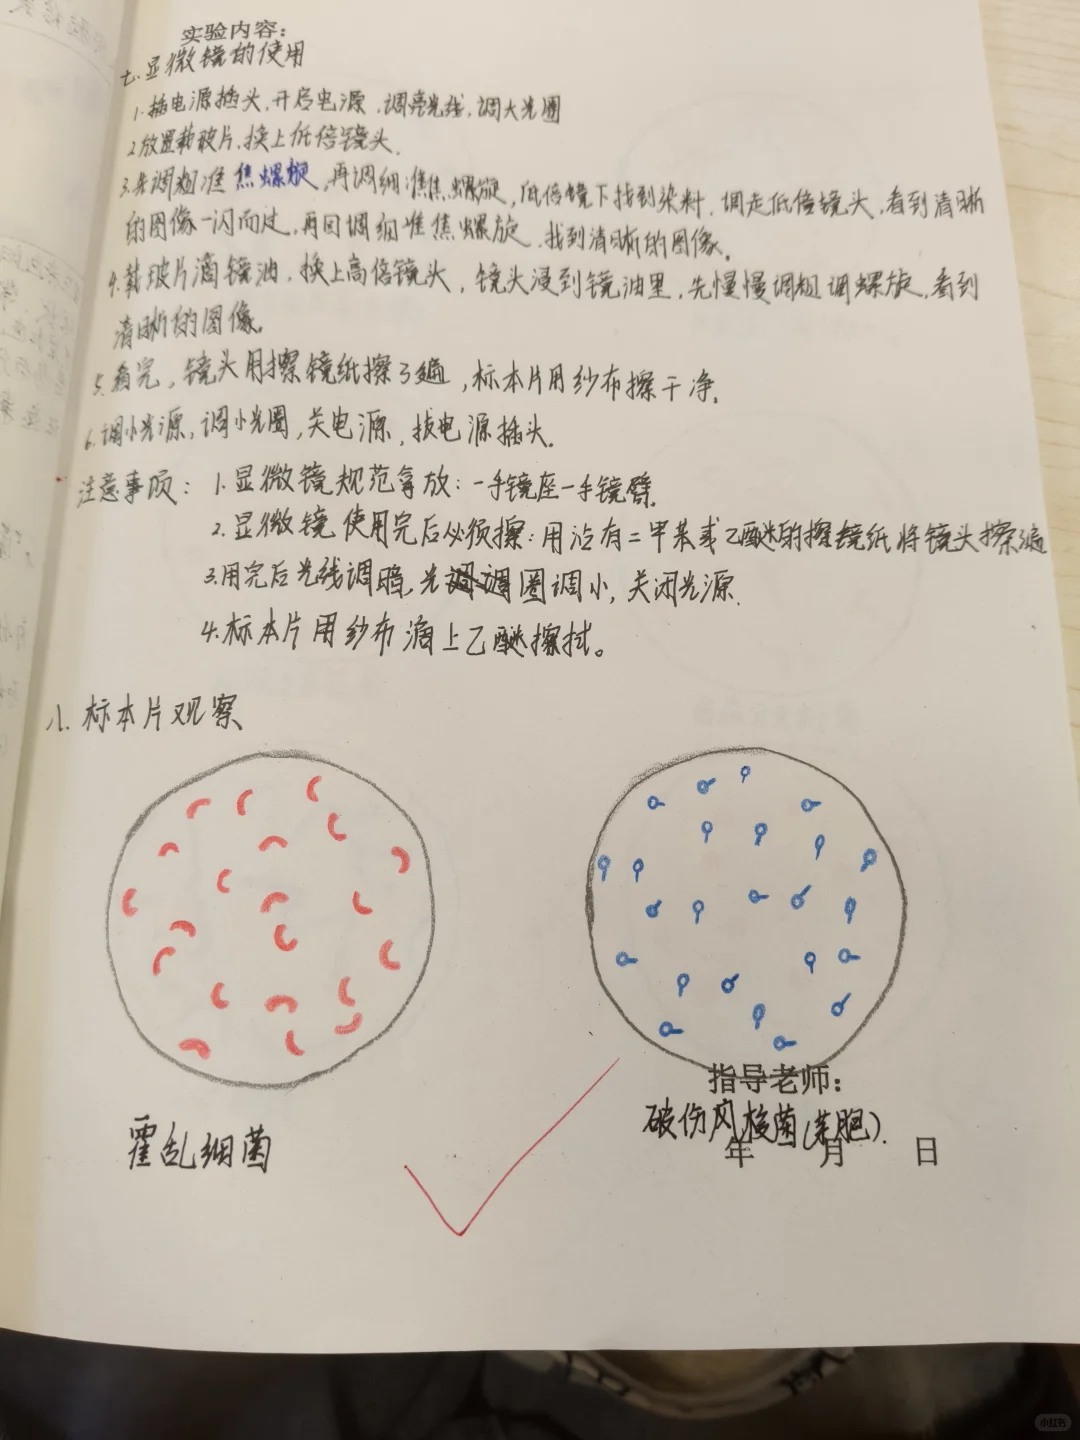 实验内容：
七.显微镜的使用
1.插电源插头,开启电源.调亮光线,调大光圈
2.放置载玻片,换上低倍镜头.
3.先调粗准焦螺旋,再调细准焦螺旋,低倍镜下找到染料.调走低倍镜头,看到清晰
的图像一闪而过,再回调细准焦螺旋.找到清晰的图像.
4.载玻片滴镜油.换上高倍镜头,镜头浸到镜油里,先慢慢调粗调螺旋,看到
清晰的图像.
5.看完,镜头用擦镜纸擦3遍,标本片用纱布擦干净.
6.调小光源,调小光圈,关电源,拔电源插头.
注意事项：1.显微镜规范拿放：一手镜座一手镜臂.
2.显微镜使用完后必须擦：用沾有二甲苯或乙醚的擦镜纸将镜头擦3遍
3.用完后光线调暗,光圈调小,关闭光源.
4.标本片用纱布滴上乙醚擦拭。
八.标本片观察
霍乱细菌
指导老师：
破伤风梭菌(芽胞).
年 月 日
小红书